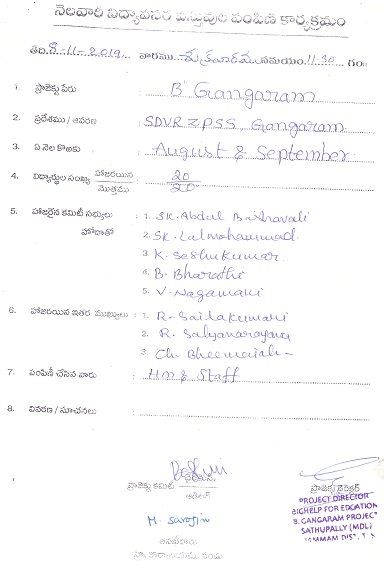 నెలవారీ విద్యావసర వస్తువుల పంపిణి కార్యక్రమం
తేది: -11-2019 వారము మంగళవారము సమయం: 11-30 గం॥
1. ప్రాజెక్టు పేరు : B' Gangaram
2. ప్రదేశము / ఆవరణ : SDVR ZPSS, Gangaram
3. ఏ నెల కొఱకు : August & September
4. విద్యార్థుల సంఖ్య హాజరయిన / మొత్తము : 20/20
5. హాజరైన కమిటీ సభ్యులు : 1. SK. Abdul Bashavali
హోదాతో 2. SK. Lalmohammad
3. K. Seshukumar
4. B. Bharathi
5. V. Nagamani
6. హాజరయిన ఇతర ముఖ్యులు : 1. R. Sailakumari
2. R. Satyanarayana
3. Ch. Bheemaiah
7. పంపిణీ చేసిన వారు : HM & Staff
8. వివరణ / సూచనలు :
ప్రాజెక్టు కమిటీ
ఆడిటర్
ప్రాజెక్టు డైరెక్టర్
PROJECT DIRECTOR
BIGHELP FOR EDCATION
B. GANGARAM PROJECT
SATHUPALLY (MDL)
KHAMMAM DIST. T.S
M. Sarojini